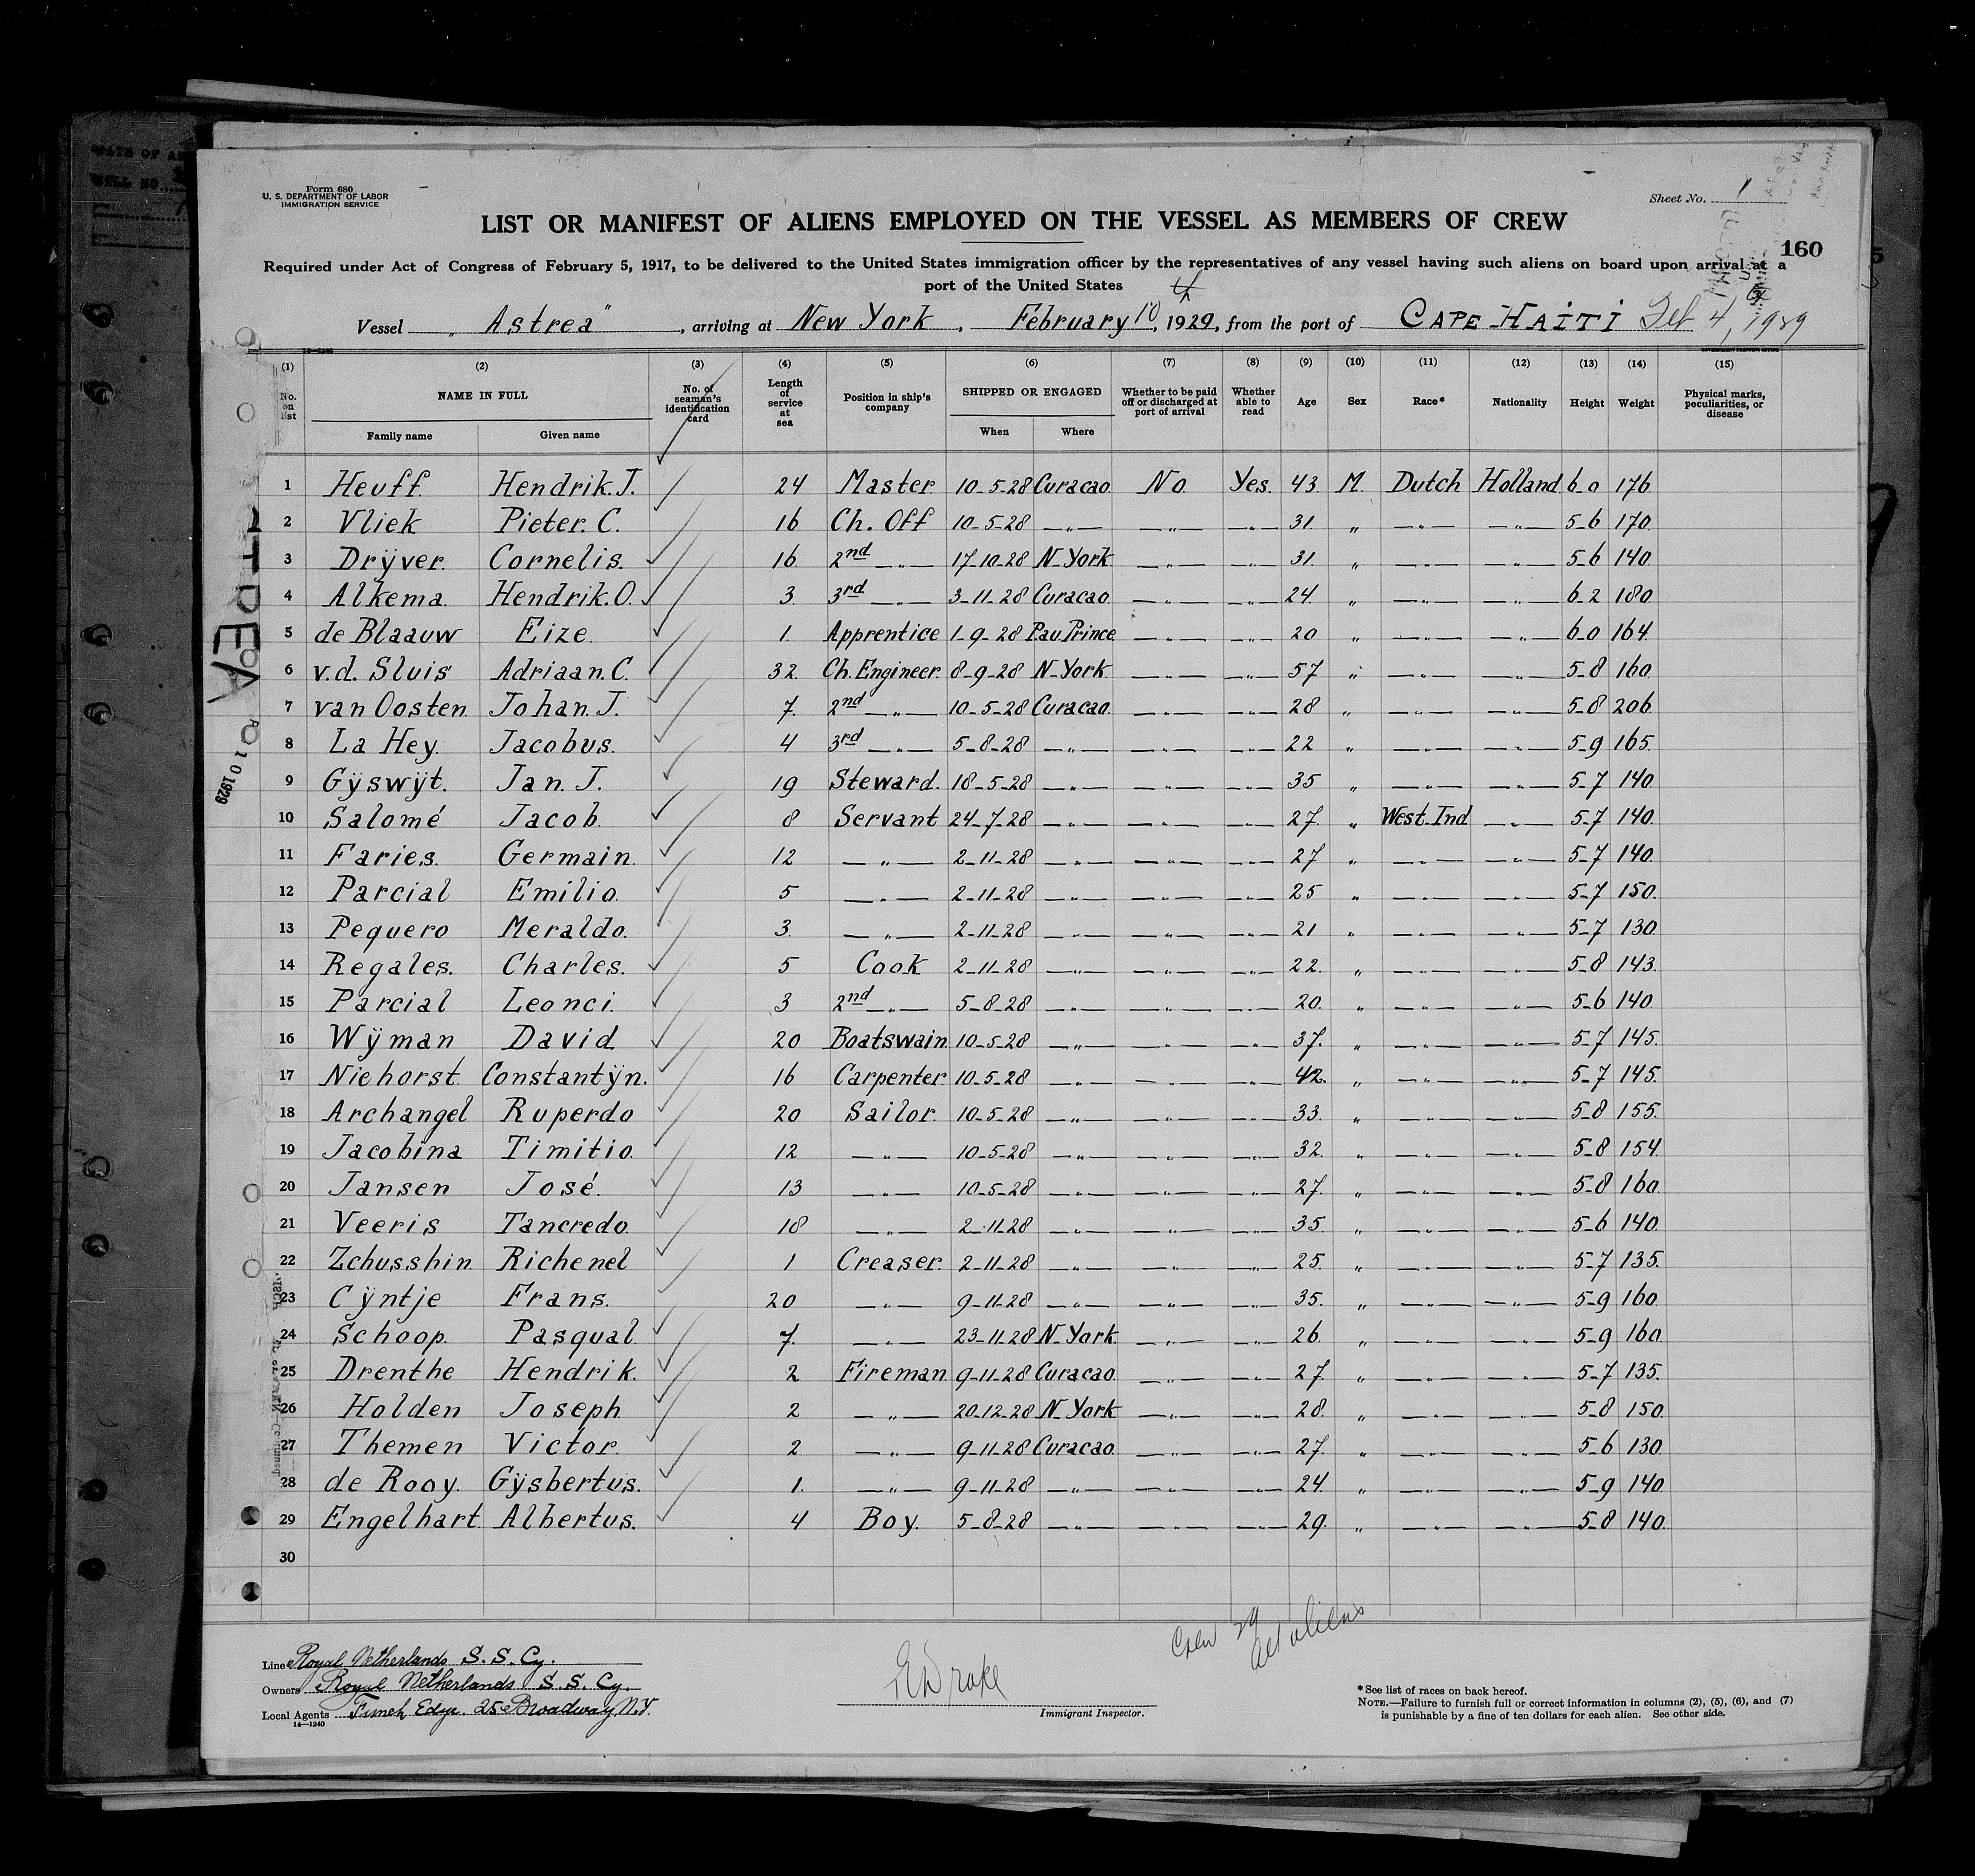 Form 680
U. S. DEPARTMENT OF LABOR
IMMIGRATION SERVICE
Sheet No. 1
LIST OR MANIFEST OF ALIENS EMPLOYED ON THE VESSEL AS MEMBERS OF CREW
160
Required under Act of Congress of February 5, 1917, to be delivered to the United States immigration officer by the representatives of any vessel having such aliens on board upon arrival at a
port of the United States
Vessel "Astrea", arriving at New York, February 10th, 1929, from the port of CAPE-HAITI Feb 4, 1929
14—1240
(1) (2) (3) (4) (5) (6) (7) (8) (9) (10) (11) (12) (13) (14) (15)
No. on list NAME IN FULL No. of seaman's identification card Length of service at sea Position in ship's company SHIPPED OR ENGAGED Whether to be paid off or discharged at port of arrival Whether able to read Age Sex Race* Nationality Height Weight Physical marks, peculiarities, or disease
Family name Given name When Where
1 Heuff. Hendrik. J. 24 Master 10-5-28 Curacao No Yes. 43 M. Dutch Holland 6-0 176
2 Vliek Pieter. C. 16 Ch. Off 10-5-28 —"— —"— —"— 31. " —"— —"— 5-6 170.
3 Drÿver. Cornelis. 16. 2nd —"— 17-10-28 N-York —"— —"— 31. " —"— —"— 5-6 140.
4 Alkema. Hendrik. O. 3. 3rd —"— 3-11-28 Curacao —"— —"— 24. " —"— —"— 6-2 180.
5 de Blaauw Eize. 1. Apprentice 1-9-28 P.au.Prince —"— —"— 20 " —"— —"— 6-0 164.
6 v.d. Sluis Adriaan. C. 32. Ch. Engineer. 8-9-28 N-York. —"— —"— 57 " —"— —"— 5-8 160
7 van Oosten Johan. J. 7. 2nd —"— 10-5-28 Curacao. —"— —"— 28 " —"— —"— 5-8 206.
8 La Hey. Jacobus. 4 3rd —"— 5-8-28 —"— —"— —"— 22 " —"— —"— 5-9 165.
9 Gÿswÿt. Jan. J. 19 Steward. 18-5-28 —"— —"— —"— 35 " —"— —"— 5-7 140.
10 Salomé Jacob. 8 Servant 24-7-28 —"— —"— —"— 27. " West-Ind —"— 5-7 140.
11 Faries. Germain. 12 —"— 2-11-28 —"— —"— —"— 27 " —"— —"— 5-7 140.
12 Parcial Emilio. 5 —"— 2-11-28 —"— —"— —"— 25 " —"— —"— 5-7 150.
13 Pequero Meraldo. 3. —"— 2-11-28 —"— —"— —"— 21 " —"— —"— 5-7 130.
14 Regales. Charles. 5 Cook 2-11-28 —"— —"— —"— 22. " —"— —"— 5-8 143.
15 Parcial Leonci. 3 2nd —"— 5-8-28 —"— —"— —"— 20. " —"— —"— 5-6 140.
16 Wÿman David. 20 Boatswain 10-5-28 —"— —"— —"— 37. " —"— —"— 5-7 145.
17 Niehorst. Constantÿn. 16 Carpenter. 10-5-28 —"— —"— —"— 42. " —"— —"— 5-7 145.
18 Archangel Ruperdo 20 Sailor. 10-5-28 —"— —"— —"— 33. " —"— —"— 5-8 155.
19 Jacobina Timitio. 12 —"— 10-5-28 —"— —"— —"— 32. " —"— —"— 5-8 154.
20 Jansen José. 13 —"— 10-5-28 —"— —"— —"— 27. " —"— —"— 5-8 160.
21 Veeris Tancredo. 18 —"— 2-11-28 —"— —"— —"— 35. " —"— —"— 5-6 140.
22 Zchusshin Richenel 1 Creaser. 2-11-28 —"— —"— —"— 25. " —"— —"— 5-7 135.
23 Cÿntje Frans. 20 —"— 9-11-28 —"— —"— —"— 35. " —"— —"— 5-9 160.
24 Schoop. Pasqual. 7. —"— 23-11-28 N-York. —"— —"— 26 " —"— —"— 5-9 160.
25 Drenthe Hendrik. 2 Fireman 9-11-28 Curacao. —"— —"— 27 " —"— —"— 5-7 135.
26 Holden Joseph 2 —"— 20-12-28 N-York —"— —"— 28. " —"— —"— 5-8 150.
27 Themen Victor. 2 —"— 9-11-28 Curacao. —"— —"— 27. " —"— —"— 5-6 130.
28 de Rooy. Gÿsbertus. 1. —"— 9-11-28 —"— —"— —"— 24. " —"— —"— 5-9 140.
29 Engelhart. Albertus. 4 Boy. 5-8-28 —"— —"— —"— 29. " —"— —"— 5-8 140.
30
Crew 29
all aliens
Line Royal Netherlands S. S. Cy.
Owners Royal Netherlands S. S. Cy.
Local Agents Funch Edye. 25 Broadway, N.Y.
14—1240
Immigrant Inspector.
*See list of races on back hereof.
NOTE.—Failure to furnish full or correct information in columns (2), (5), (6), and (7)
is punishable by a fine of ten dollars for each alien. See other side.